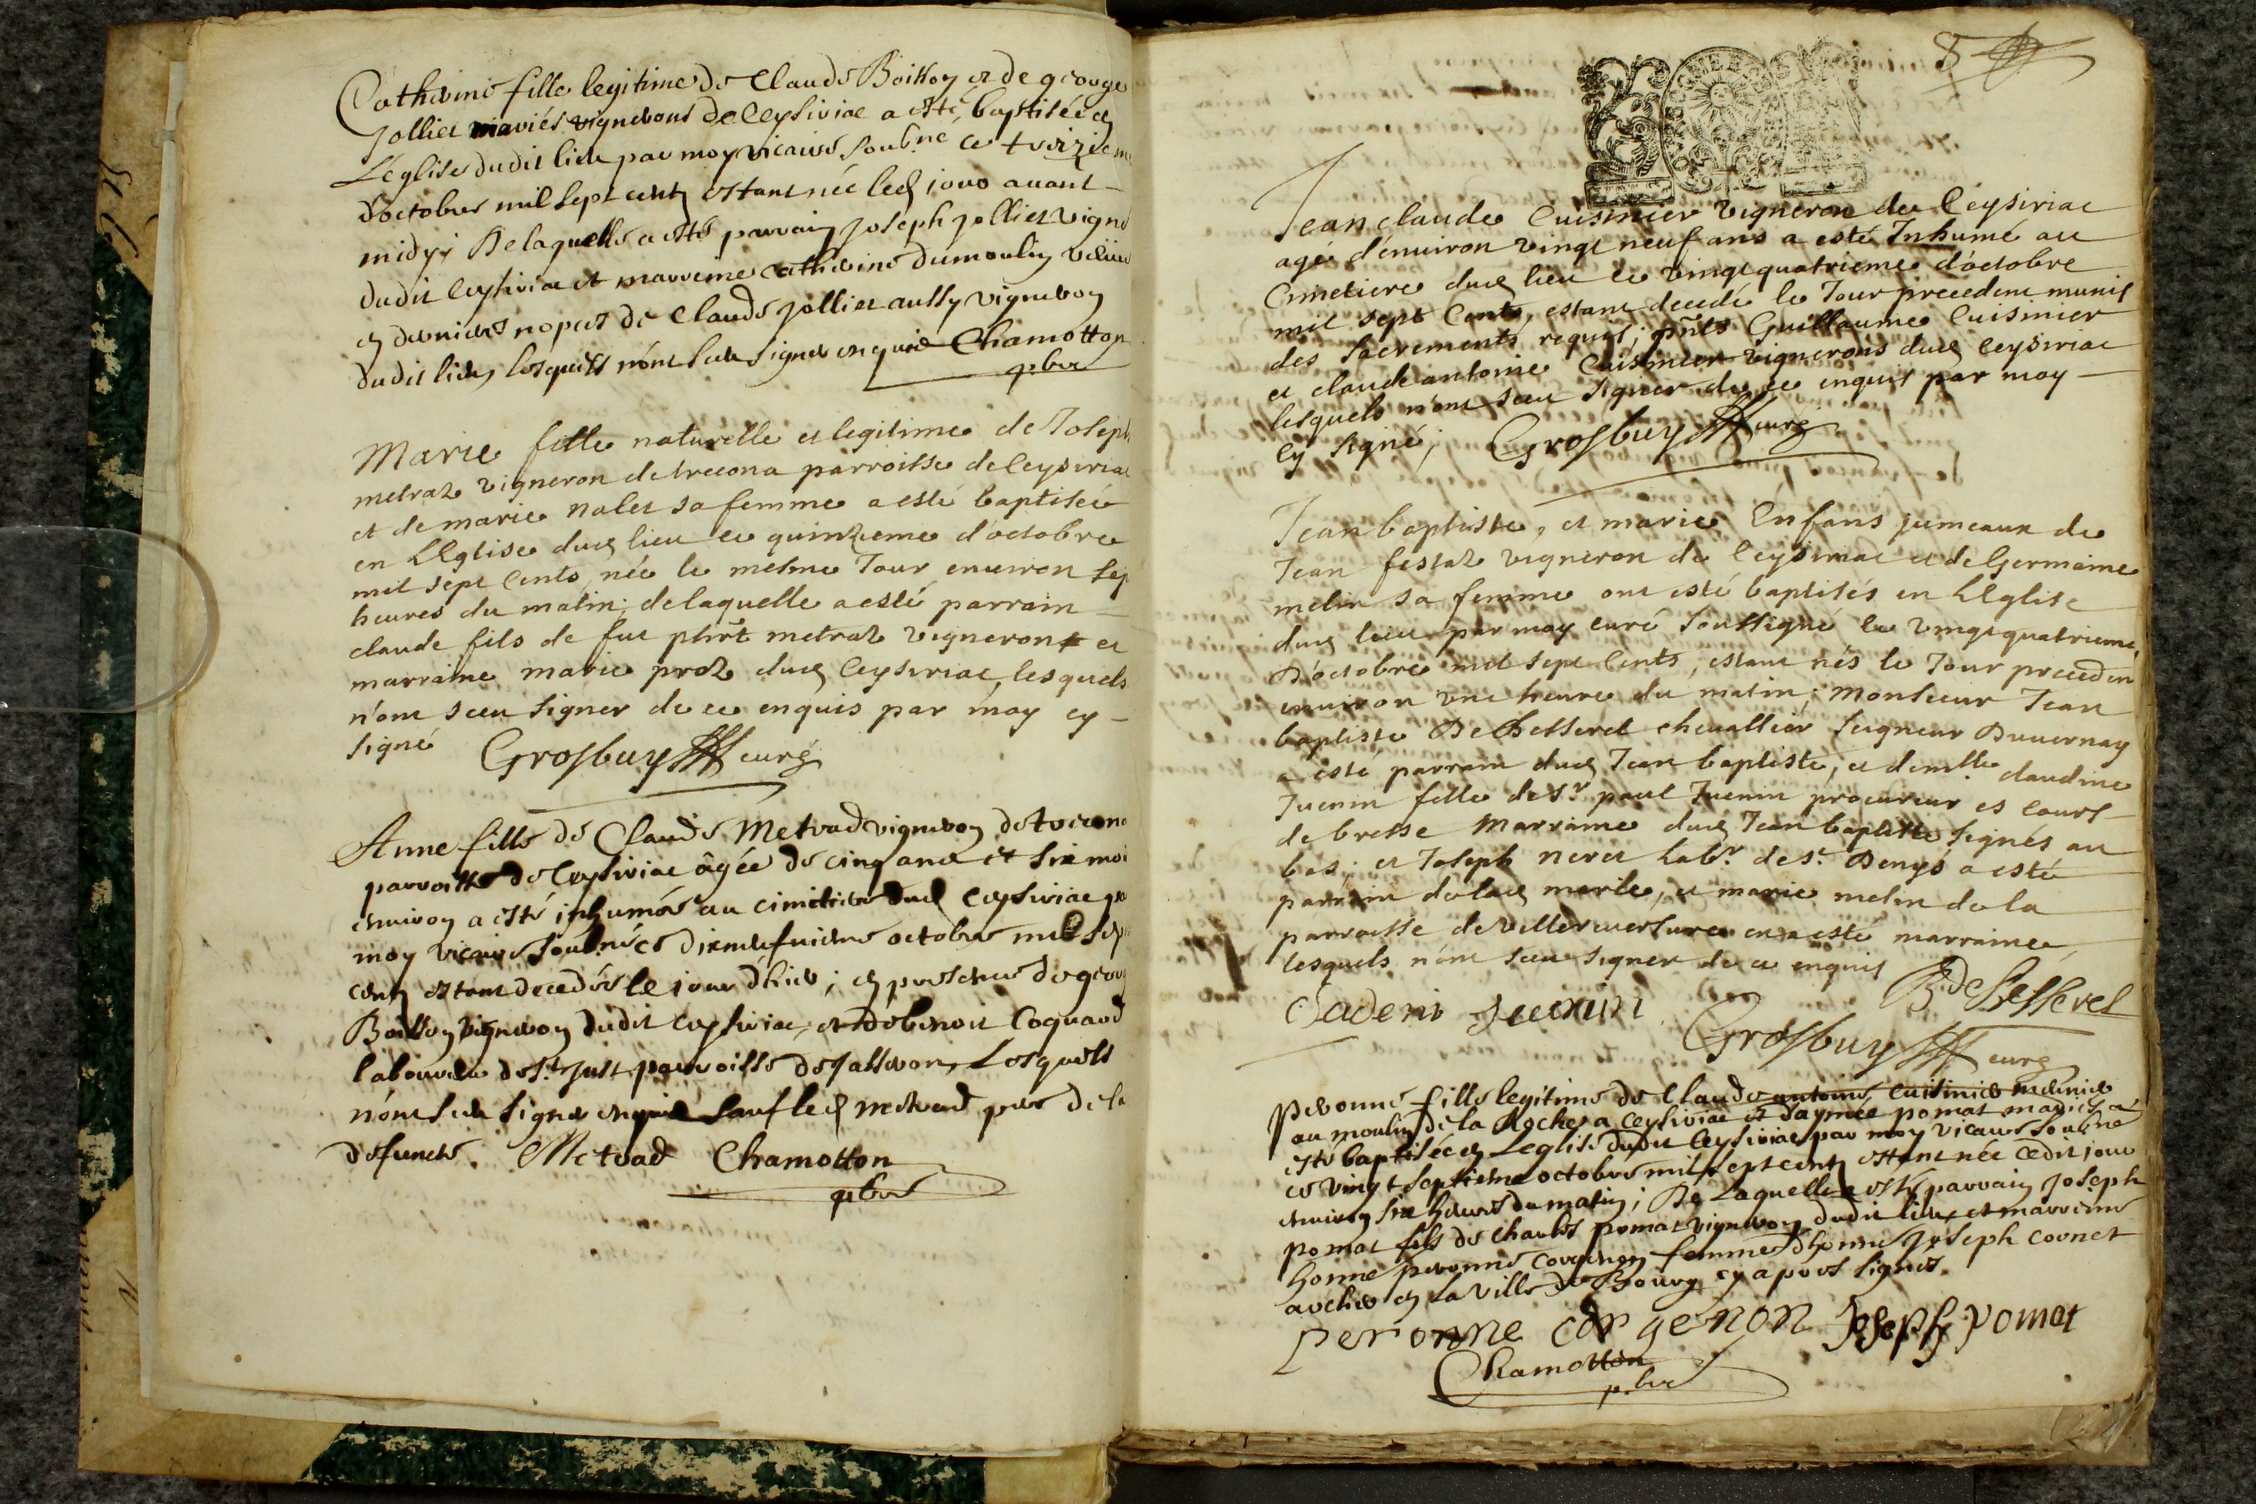 Catherine fille legitime de Claude Boisson et de george
Jollier mariés vignerons de Ceysiriac a esté baptisée en
L'église dudit lieu par moy vicaire soub.né ce treizieme
d'octobre mil sept cents estant née led jour avant
midy; De laquelle a esté parrain Joseph Jollier vigne
dudit Ceysiriac et marreine Catherine dumoulin veuve
en dernieres nopces de Claude Jollier aussy vigneron
dudit lieu, lesquels n'ont sceu signer enquis Chamotton
pbre
Marie fille naturelle et legitime de Joseph
metraz vigneron de trecona parroisse de Ceysiriac
et de marie nalet sa femme a esté baptisée
en L'Eglise dud lieu le quinzieme d'octobre
mil sept Cents, née le mesme Jour environ sep
heures du matin; de laquelle a esté parrain
claude fils de fut phirt metraz vigneron et
marraine marie proz dud Ceysiriac, lesquels
n'ont sceu signer de ce enquis par moy cy
signé Grosbuy curé
Anne fille de Claude Metrad vigneron de trecona
parroisse de Ceysiriac âgée de cinq ans et six moi
environ a esté inhumée au cimetiere dud Ceysiriac par
moy vicaire soub.né ce dixneufvieme octobre mil sep
cents estant decedée le jour d'hier; en presence de george
Boisson vigneron dudit Ceysiriac, et de benoit Coquard
laboureur de st Just parroisse de Jasseron, Lesquels
n'ont sceu signer enquis sauf led metrad pere de la
defuncte. Metrad Chamotton
pbre
8
Jean claude Cuisinier vigneron de Ceysiriac
agé d'environ vingt neuf ans a esté Inhumé au
Cimetiere dud lieu le vingtquatrieme d'octobre
mil sept Cents, estant decedé le Jour precedent munis
des sacrements requis; pnts Guillaume Cuisinier
et claude antoine Cuisinier vignerons dud Ceysiriac
lesquels n'ont sceu signer de ce enquis par moy
cy signé; Grosbuy curé
Jean baptiste, et marie Enfans jumeaux de
Jean festaz vigneron de Ceysiriac et de Germaine
melin sa femme ont esté baptisés en L'Eglise
dud lieu par moy curé soussigné le vingtquatrieme
D'octobre mil sept Cents, estant nés le Jour preceden
environ une heure du matin; Monsieur Jean
baptiste De Besserel chevallier seigneur Duvernay
a esté parrain dud Jean baptiste, et demlle claudine
Juenin fille de sr paul Juenin procureur es cours
de bresse Marraine dud Jean baptiste signés au
bas; et Joseph neret Labr de st Denys a esté
parrain de lad marie, et marie melin de la
parroisse de villereversure en a esté marraine
lesquels n'ont sceu signer de ce enquis
Juenin B. de Besserel
Grosbuy curé
Peronne fille legitime de Claude antoine cuisinier meunier
au moulin de la Roche a Ceysiriac et d'aymée pomat mariés a
esté baptisée en L'eglise dudit Ceysiriac par moy vicaire soub.né
ce vingt septieme octobre mil sept cents estant née cedit jour
environ six heures du matin; De Laquelle a esté parrain Joseph
pomat fils de charles pomat vigneron dudit lieu et marreine
honne peronne corgenon femme d'honne Joseph cornet
archer en la Ville de Bourg cy apres signés.
peronne corgenon Joseph pomat
Chamotton
pbre